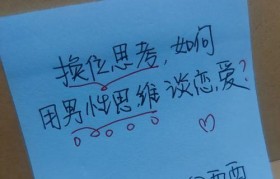 换位思考,如何
用男性思维谈恋爱?